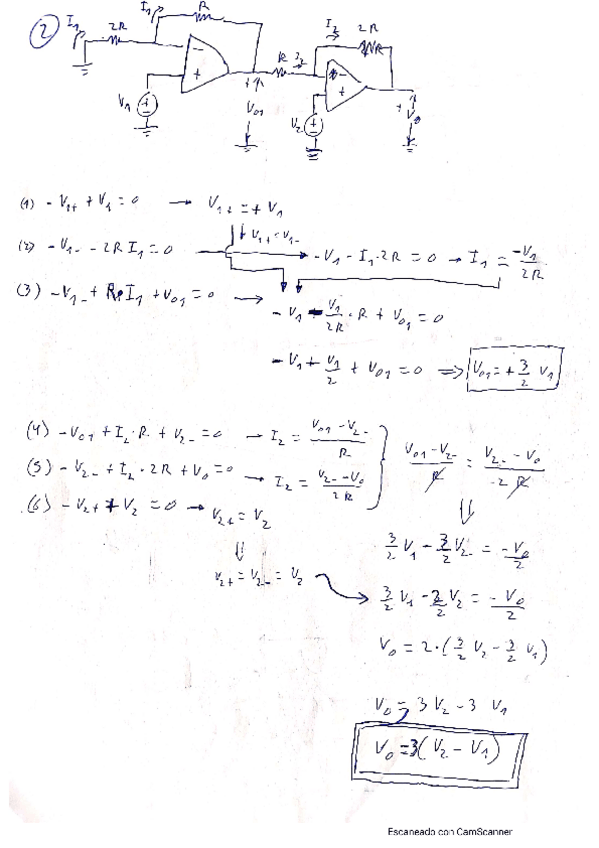 2
I₁ 2R I₁ R
I₂ 2R
R I₂
V₁ + V₀₁ V₂ + V₀
(1) -V₁₊ + V₁ = 0 → V₁₊ = +V₁
↓ V₁₊ = V₁₋
(2) -V₁₋ - 2R I₁ = 0 → -V₁ - I₁·2R = 0 → I₁ = -V₁/2R
(3) -V₁₋ + R·I₁ + V₀₁ = 0 → -V₁ - V₁/2R · R + V₀₁ = 0
-V₁ + V₁/2 + V₀₁ = 0 ⇒ V₀₁ = + 3/2 V₁
(4) -V₀₁ + I₂·R + V₂₋ = 0 → I₂ = (V₀₁ - V₂₋)/R
(V₀₁ - V₂₋)/R = (V₂₋ - V₀)/2R
(5) -V₂₋ + I₂·2R + V₀ = 0 → I₂ = (V₂₋ - V₀)/2R
(6) -V₂₊ + V₂ = 0 → V₂₊ = V₂
⇓
3/2 V₁ - 3/2 V₂₋ = -V₀/2
V₂₊ = V₂₋ = V₂ → 3/2 V₁ - 3/2 V₂ = -V₀/2
V₀ = 2·(3/2 V₂ - 3/2 V₁)
V₀ = 3 V₂ - 3 V₁
V₀ = 3(V₂ - V₁)
Escaneado con CamScanner